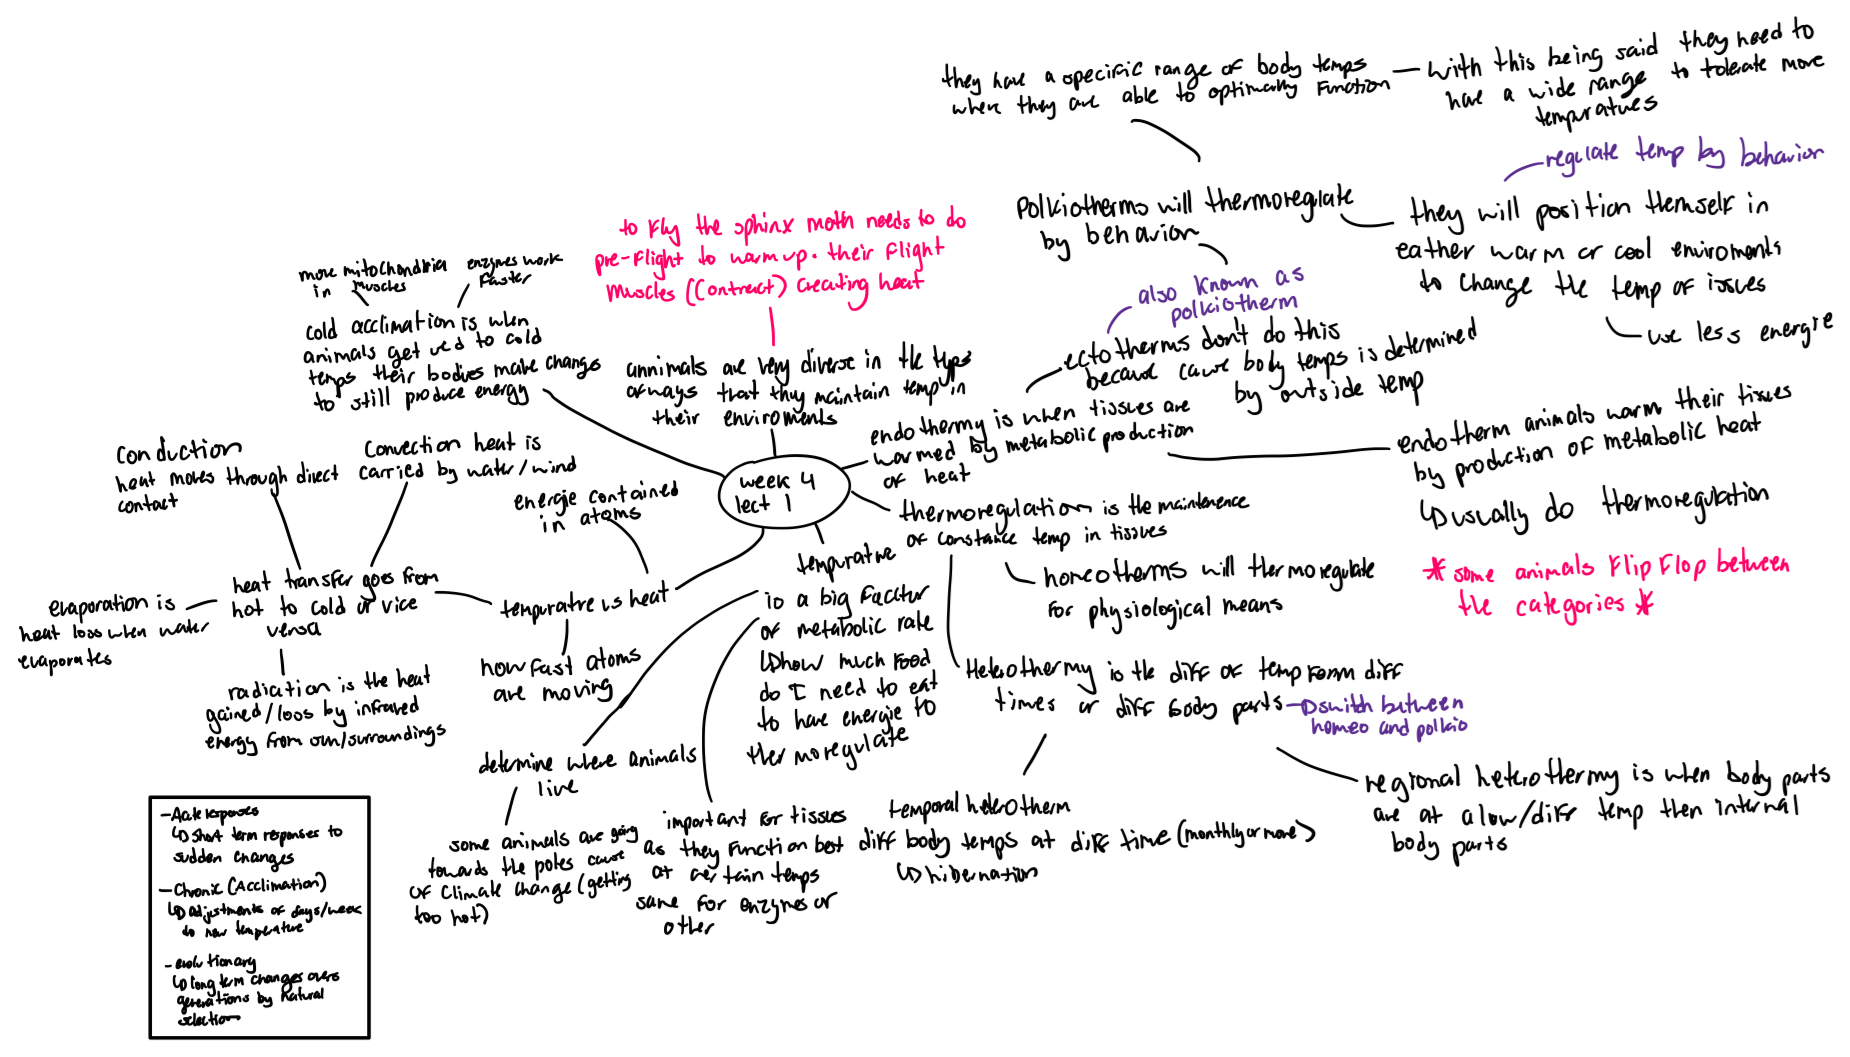 they have a specific range of body temps
where they are able to optimally function
With this being said they need to
have a wide range to tolerate more
tempuratures
regulate temp by behavior
Polkiotherms will thermoregulate
by behavior
they will position themself in
eather warm or cool enviroments
to change the temp of issues
use less energie
also known as
polkiotherm
ectotherms don't do this
because cause body temps is determined
by outside temp
to fly the sphinx moth needs to do
pre-flight to warm up. their flight
muscles (contract) creating heat
annimals are very diverse in the types
of ways that they maintain temp in
their enviroments
more mitochondria
in muscles
enzymes work
faster
cold acclimation is when
animals get used to cold
temps their bodies make changes
to still produce energy
endothermy is when tissues are
warmed by metabolic production
of heat
endotherm animals warm their tissues
by production of metabolic heat
↳ usually do thermoregulation
* some animals flip flop between
the categories *
week 4
lect 1
conduction
heat moves through direct
contact
Convection heat is
carried by water/wind
energie contained
in atoms
thermoregulation is the maintenence
of constance temp in tissues
homeotherms will thermoregulate
for physiological means
heat transfer goes from
hot to cold or vice
versa
evaporation is
heat loss when water
evaporates
radiation is the heat
gained/loss by infrared
energy from sun/surroundings
tempuratre vs heat
how fast atoms
are moving
tempurature
is a big facctur
of metabolic rate
↳ how much food
do I need to eat
to have energie to
thermoregulate
Heterothermy is the diff of temp form diff
times or diff body parts
switch between
homeo and polkio
temporal heterotherm
diff body temps at diff time (monthly or more)
↳ hibernation
regional heterothermy is when body parts
are at a low/diff temp then internal
body parts
determine where animals
live
some animals are going
towards the poles cause
of climate change (getting
too hot)
important for tissues
as they function best
at certain temps
same for enzymes or
other
- Acute responses
↳ short term responses to
sudden changes
- Chronic (Acclimation)
↳ adjustments of days/week
to new temperature
- evolutionary
↳ long term changes overs
generations by natural
selection